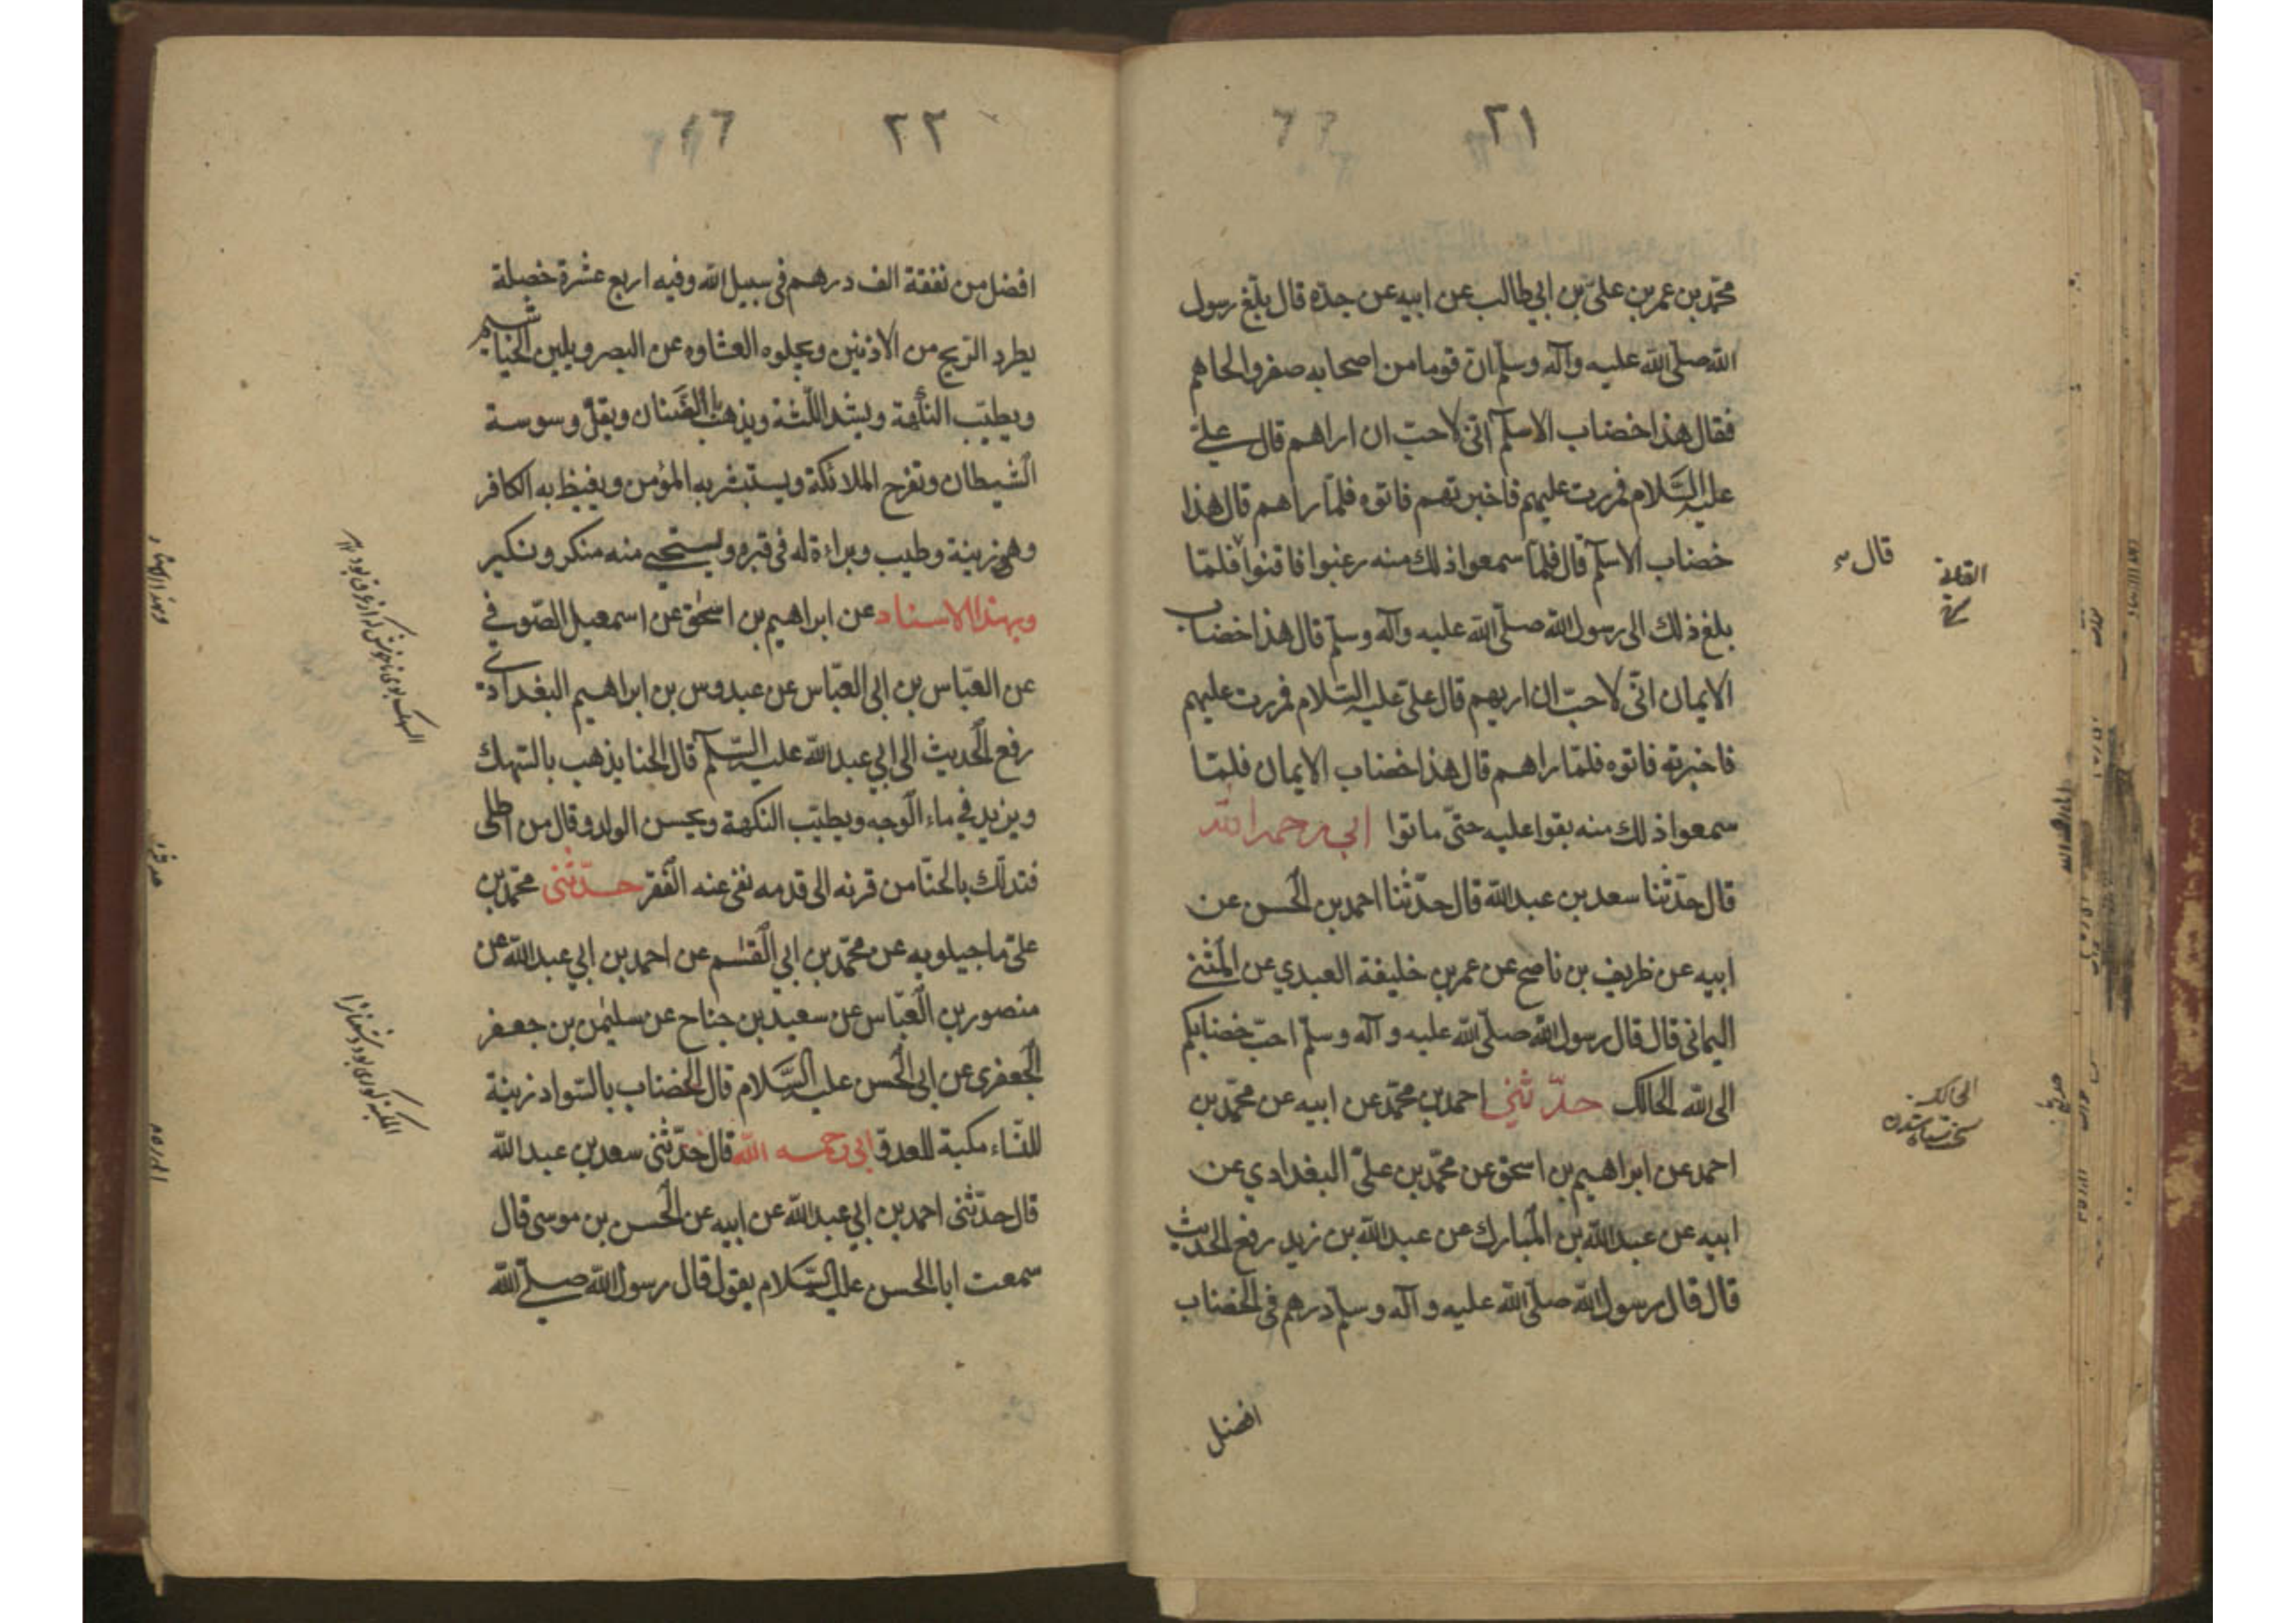 ٢١
محمّد بن عمر بن علىّ بن ابي طالب عن ابيه عن جدّه قال بلغ رسول
الله صلّى الله عليه وآله وسلّم ان قوما من اصحابه صفروا لحاهم
فقال هذا خضاب الاسلم انّى لاحبّ ان اراهم قال علىّ
عليه السَّلام فمررت عليهم فاخبرتهم فاتوه فلمّا راهم قال هذا
خضاب الاسلم قال فلمّا سمعوا ذلك منه رغبوا فاقنوا فلمّا
بلغ ذلك الى رسول الله صلّى الله عليه وآله وسلّم قال هذا خضاب
الايمان انّى لاحبّ ان اريهم قال علىّ عليه السّلام فمررت عليهم
فاخبرته فاتوه فلمّا راهم قال هذا خضاب الايمان فلمّا
سمعوا ذلك منه بقوا عليه حتّى ماتوا ابي رحمه الله
قال حدّثنا سعد بن عبد الله قال حدّثنا احمد بن الحسن عن
ابيه عن ظريف بن ناصح عن عمر بن خليفة العبدي عن المثنى
اليمانى قال قال رسول الله صلّى الله عليه وآله وسلّم احبّ خضابكم
الى الله الحالك حدّثنى احمد بن محمّد عن ابيه عن محمّد بن
احمد عن ابراهيم بن اسحق عن محمّد بن علىّ البغدادي عن
ابيه عن عبد الله بن المبارك عن عبد الله بن زيد رفع الحديث
قال قال رسول الله صلّى الله عليه وآله وسلّم درهم فى الخضاب
افضل
قال
الحالك
٢٢
افضل من نفقة الف درهم فى سبيل الله وفيه اربع عشرة خصلة
يطرد الريح من الاذنين ويجلوه الغشاوه عن البصر ويلين الخياشيم
ويطيّب النكهة ويشد اللّثة ويذهب بالضَّنان ويقلّ وسوسة
الشيطان وتفرح الملائكة ويستبشر به المؤمن ويغيظ به الكافر
وهى زينة وطيب وبراءة له فى قبره ويستحيى منه منكر ونكير
وبهذا الاسناد عن ابراهيم بن اسحٰق عن اسمعيل الصّوفي
عن العبّاس بن ابى العبّاس عن عبدوس بن ابراهيم البغدادى
رفع الحديث الى ابي عبد الله عليه السّلم قال الحنا يذهب بالسّهك
ويزيد في ماء الوجه ويطيّب النكهة ويحسن الولد وقال من اطلى
فتدلّك بالحنّا من قرنه الى قدمه نفى عنه الفقر حدّثنى محمّد بن
علىّ ماجيلويه عن محمّد بن ابي القٰسم عن احمد بن ابي عبد الله عن
منصور بن العبّاس عن سعيد بن جناح عن سليمٰن بن جعفر
الجعفرى عن ابى الحسن عليه السَّلام قال الخضاب بالسّواد زينة
للنّساء مكبة للعدو ابى رحمه الله قال حدّثنى سعد بن عبد الله
قال حدّثنى احمد بن ابي عبد الله عن ابيه عن الحسن بن موسى قال
سمعت ابا الحسن عليه السَّلام يقول قال رسول الله صلّى الله